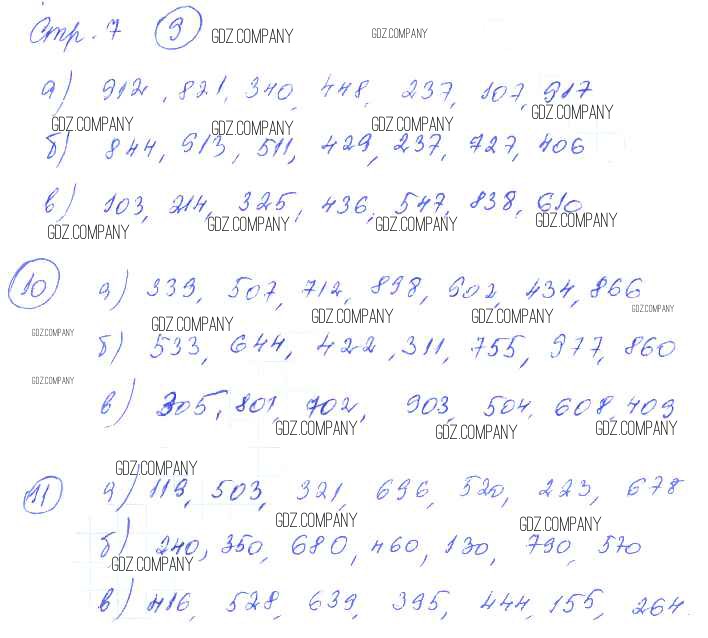 Стр. 7 9 GDZ.COMPANY GDZ.COMPANY
а) 912, 821, 340, 448, 237, 107, 917
GDZ.COMPANY GDZ.COMPANY GDZ.COMPANY GDZ.COMPANY
б) 844, 913, 511, 429, 237, 727, 406
в) 103, 214, 325, 436, 547, 838, 610
GDZ.COMPANY GDZ.COMPANY GDZ.COMPANY GDZ.COMPANY
10 а) 339, 507, 712, 898, 902, 434, 866
GDZ.COMPANY GDZ.COMPANY GDZ.COMPANY GDZ.COMPANY
GDZ.COMPANY б) 533, 644, 422, 311, 755, 977, 860
GDZ.COMPANY
в) 305, 801, 702, 903, 504, 608, 409
GDZ.COMPANY GDZ.COMPANY GDZ.COMPANY
GDZ.COMPANY
11 а) 119, 503, 321, 696, 520, 223, 678
GDZ.COMPANY GDZ.COMPANY
б) 240, 350, 680, 460, 130, 790, 570
GDZ.COMPANY
в) 416, 528, 639, 395, 444, 155, 264.